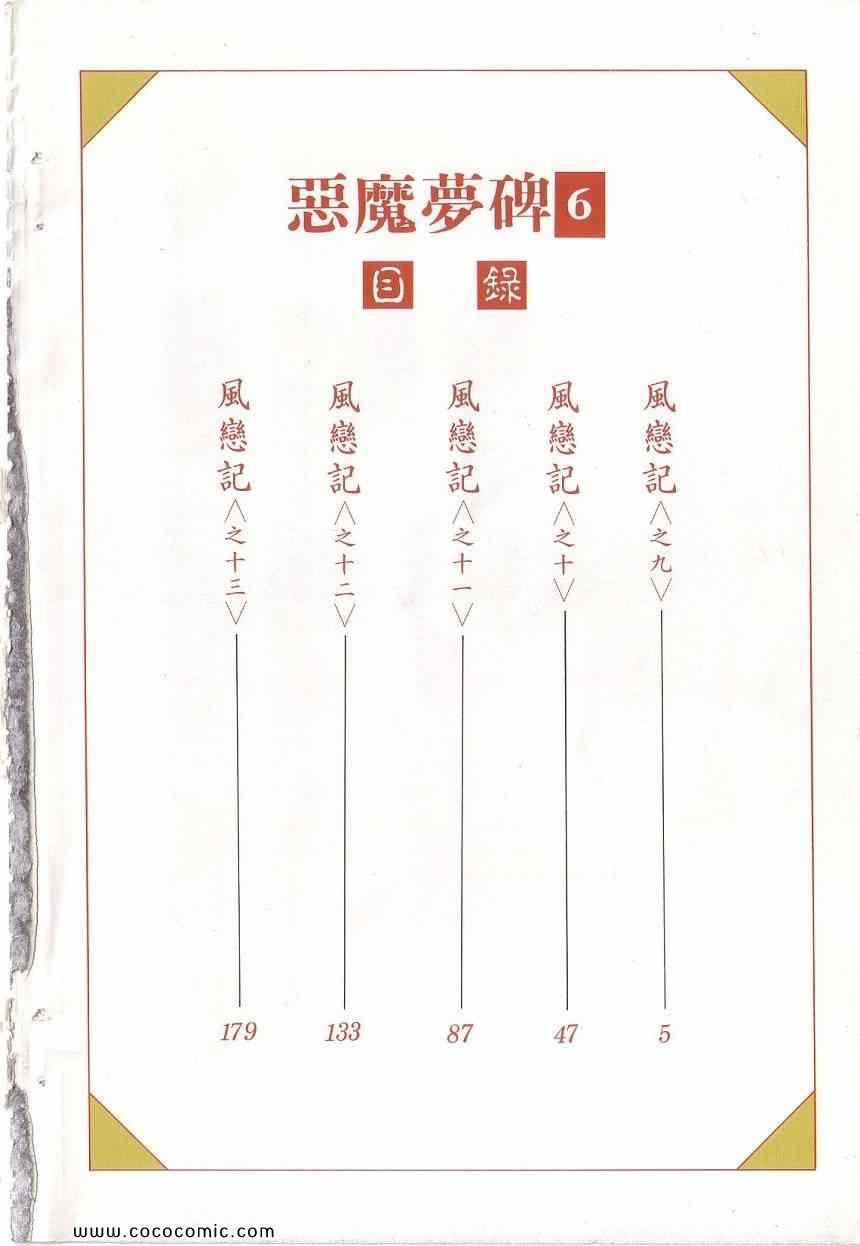 惡魔夢碑 6
目錄
風戀記〈之九〉 5
風戀記〈之十〉 47
風戀記〈之十一〉 87
風戀記〈之十二〉 133
風戀記〈之十三〉 179
www.cococomic.com